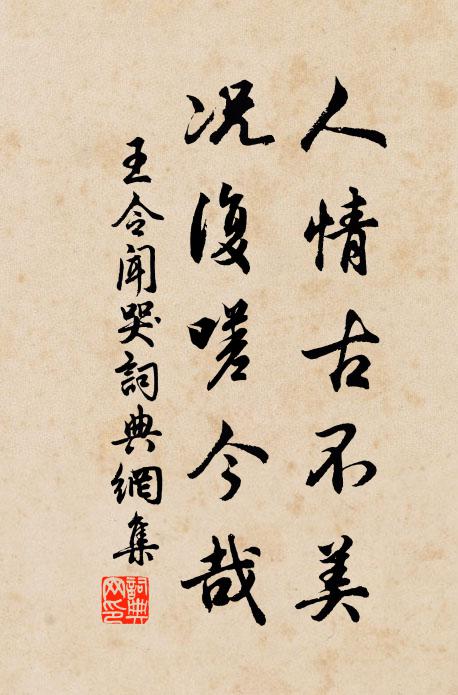 人情古不美
况復嗟今哉
王令聞哭詞典網集
詞典網印